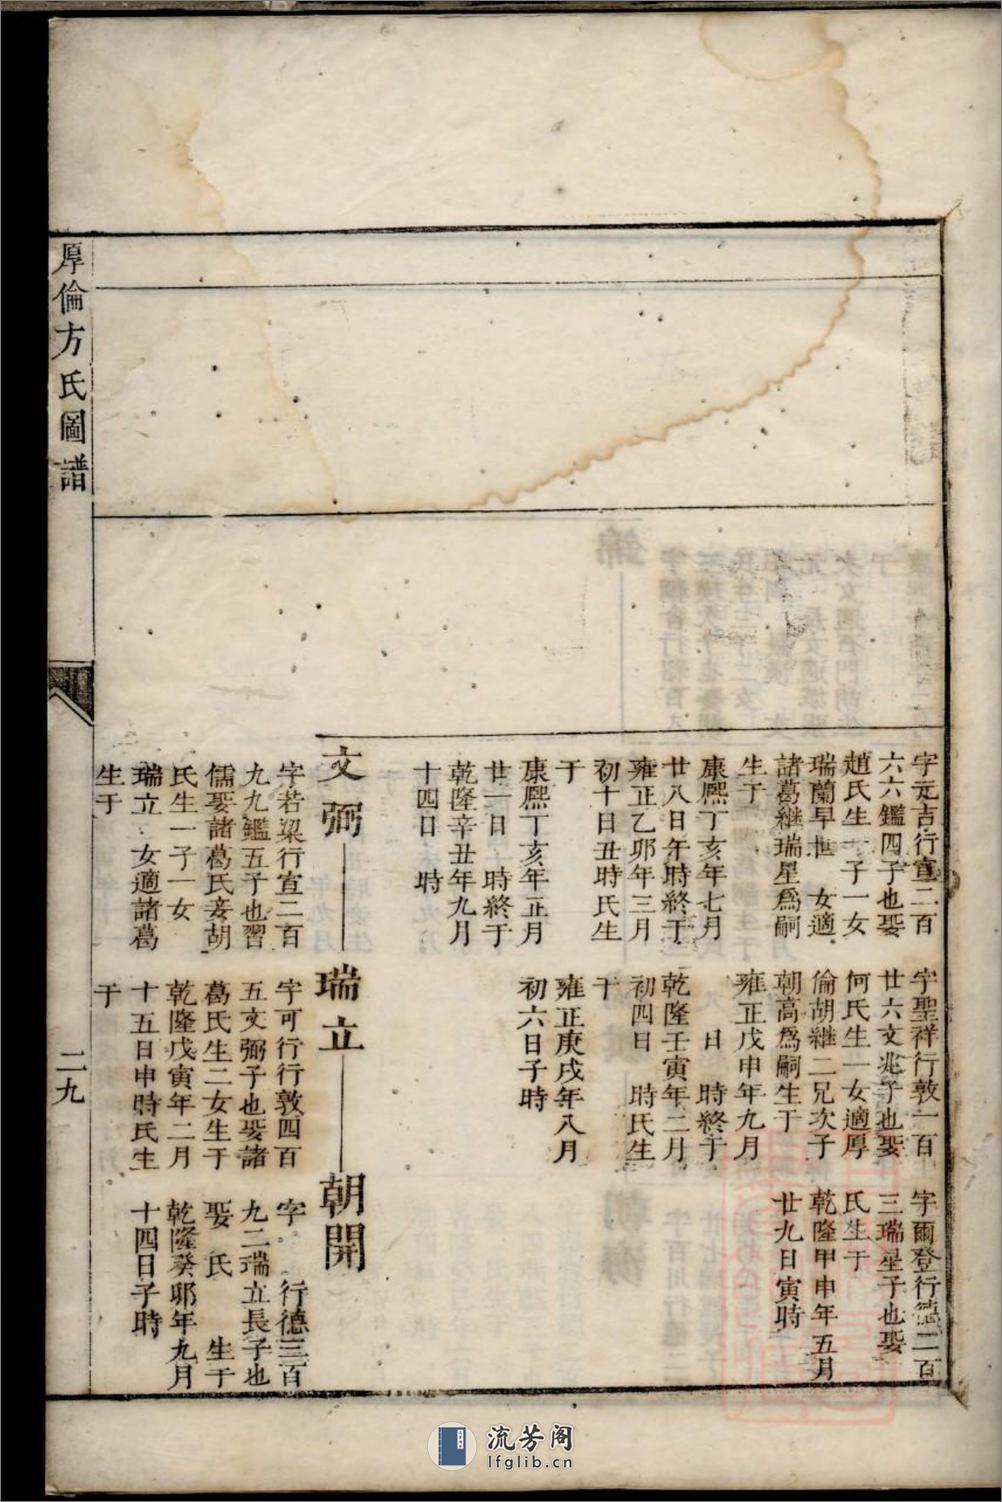 字元吉行宣二百
六六鑑四子也娶
趙氏生一子一女
瑞蘭早世　女適
諸葛繼瑞星爲嗣
生于
康熙丁亥年七月
廿八日午時終于
雍正乙卯年三月
初十日丑時氏生
于
康熙丁亥年正月
廿一日　時終于
乾隆辛丑年九月
十四日　時
字聖祥行敦一百
廿六文兆子也娶
何氏生一女適厚
倫胡繼二兄次子
朝高爲嗣生于
雍正戊申年九月
　日　時終于
乾隆壬寅年二月
初四日　時氏生
于
雍正庚戌年八月
初六日子時
字爾登行德二百
三瑞星子也娶
氏生于
乾隆甲申年五月
廿九日寅時
文弼——瑞立——朝開
字若梁行宣二百
九九鑑五子也習
儒娶諸葛氏妾胡
氏生一子一女
瑞立　女適諸葛
生于
字可行行敦四百
五文弼子也娶諸
葛氏生二女生于
乾隆戊寅年二月
十五日申時氏生
于
字　行德三百
九二瑞立長子也
娶　氏　生于
乾隆癸卯年九月
十四日子時
厚倫方氏圖譜
二九
流芳阁
lfglib.cn